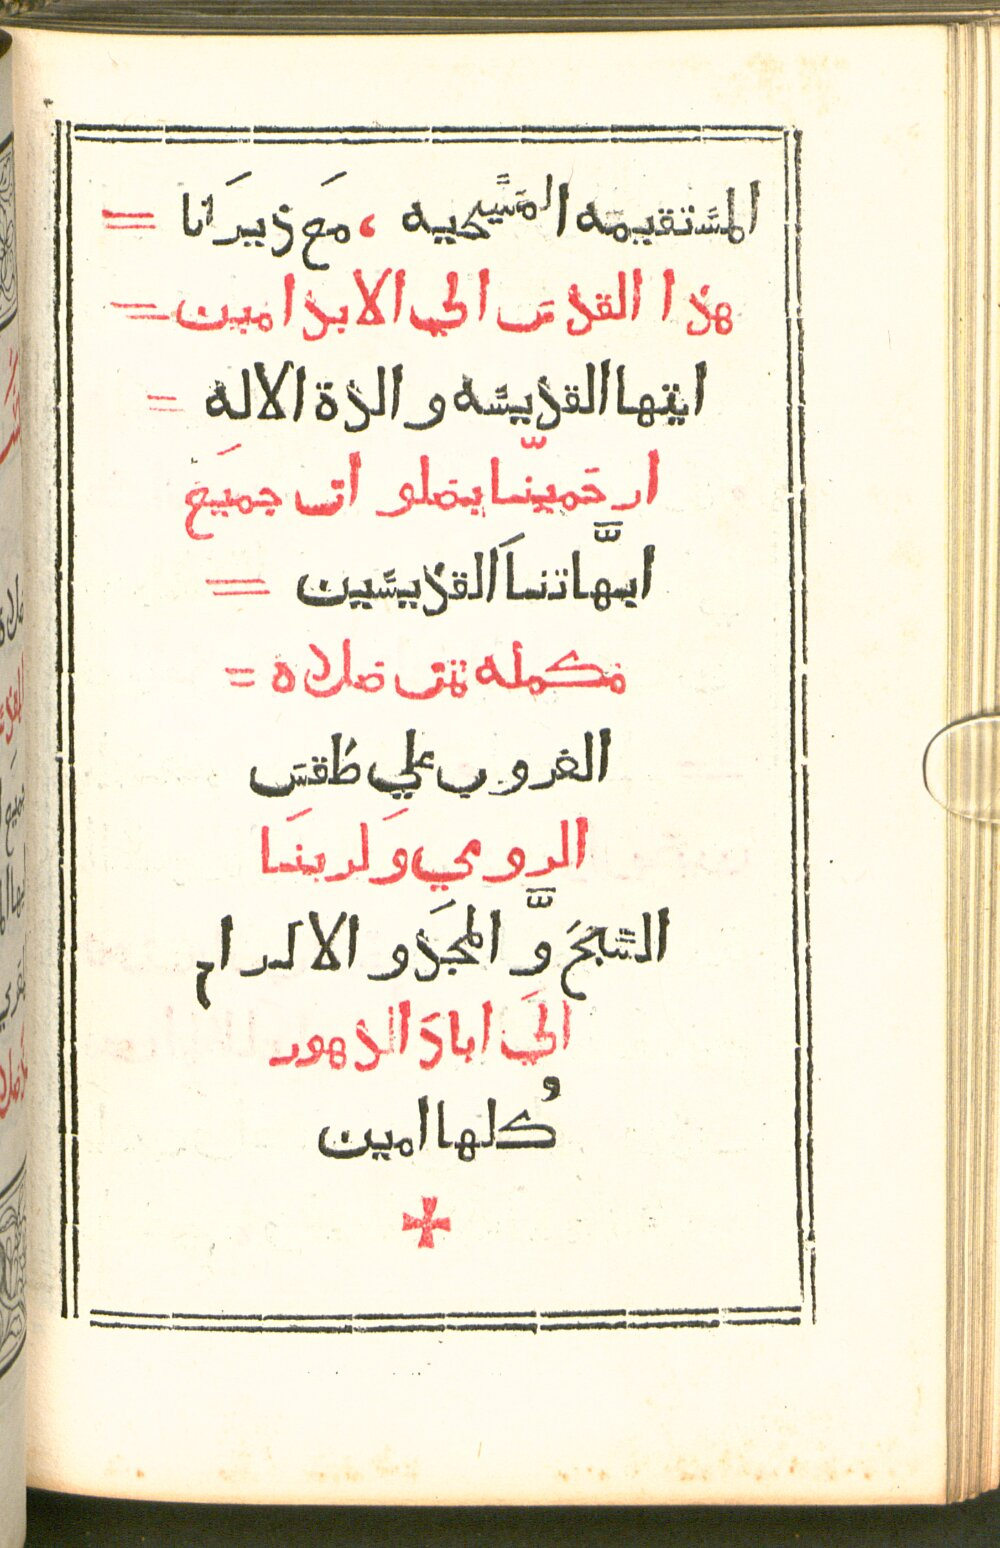 المستقيمه المسيحيه ، مع ذيرانا =
هذا القدس الي الابد امين =
ايتها القديسه والدة الاله =
ارحمينا بصلوات جميع
ابهاتنا القديسين =
مكمله تمت صلاه =
الغروب علي طقس
الرومي ولربنا
السبح والمجد والاكرام
الي اباد الدهور
كلها امين